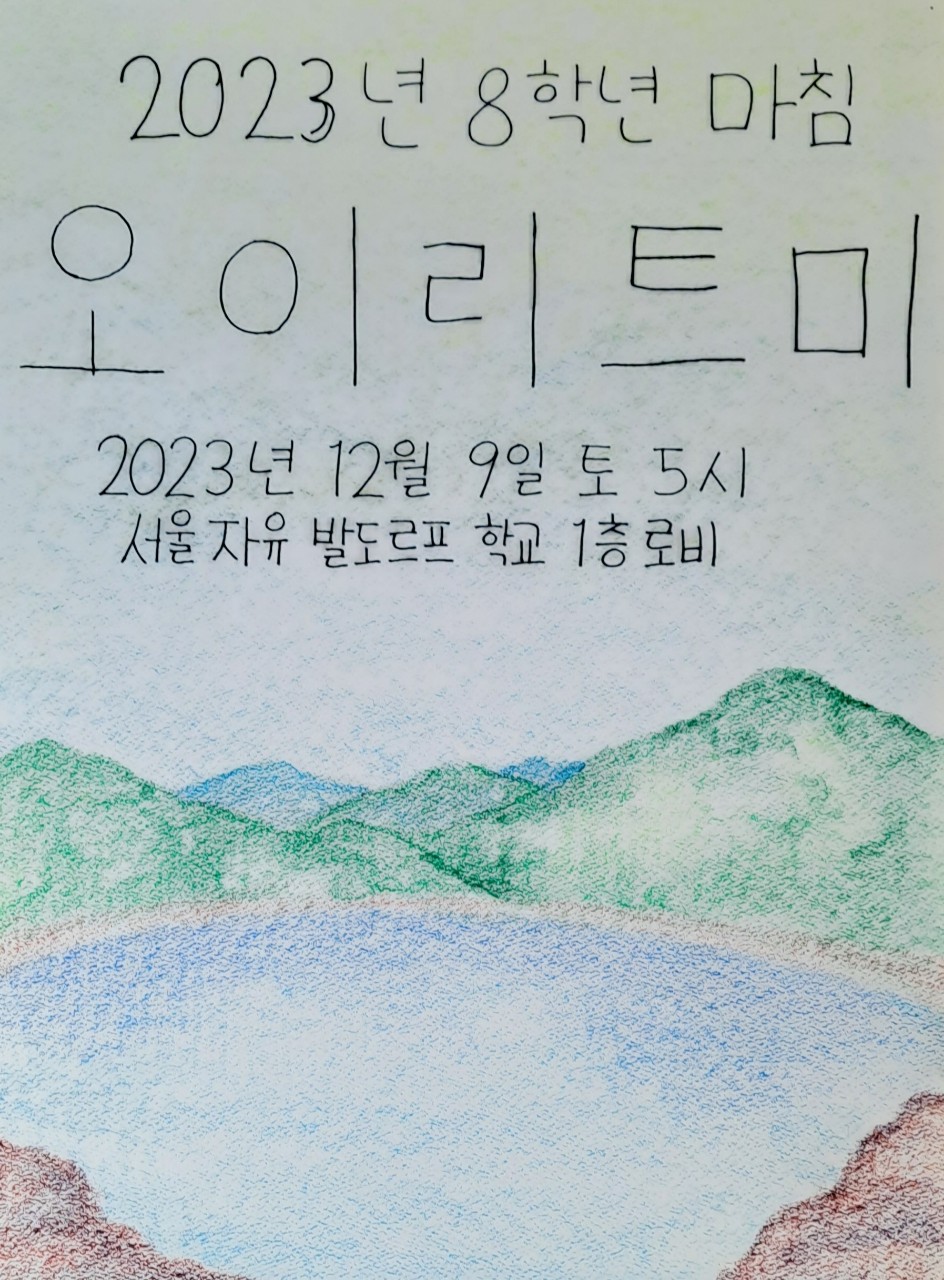 2023년 8학년 마침
오이리트미
2023년 12월 9일 토 5시
서울 자유 발도르프 학교 1층 로비